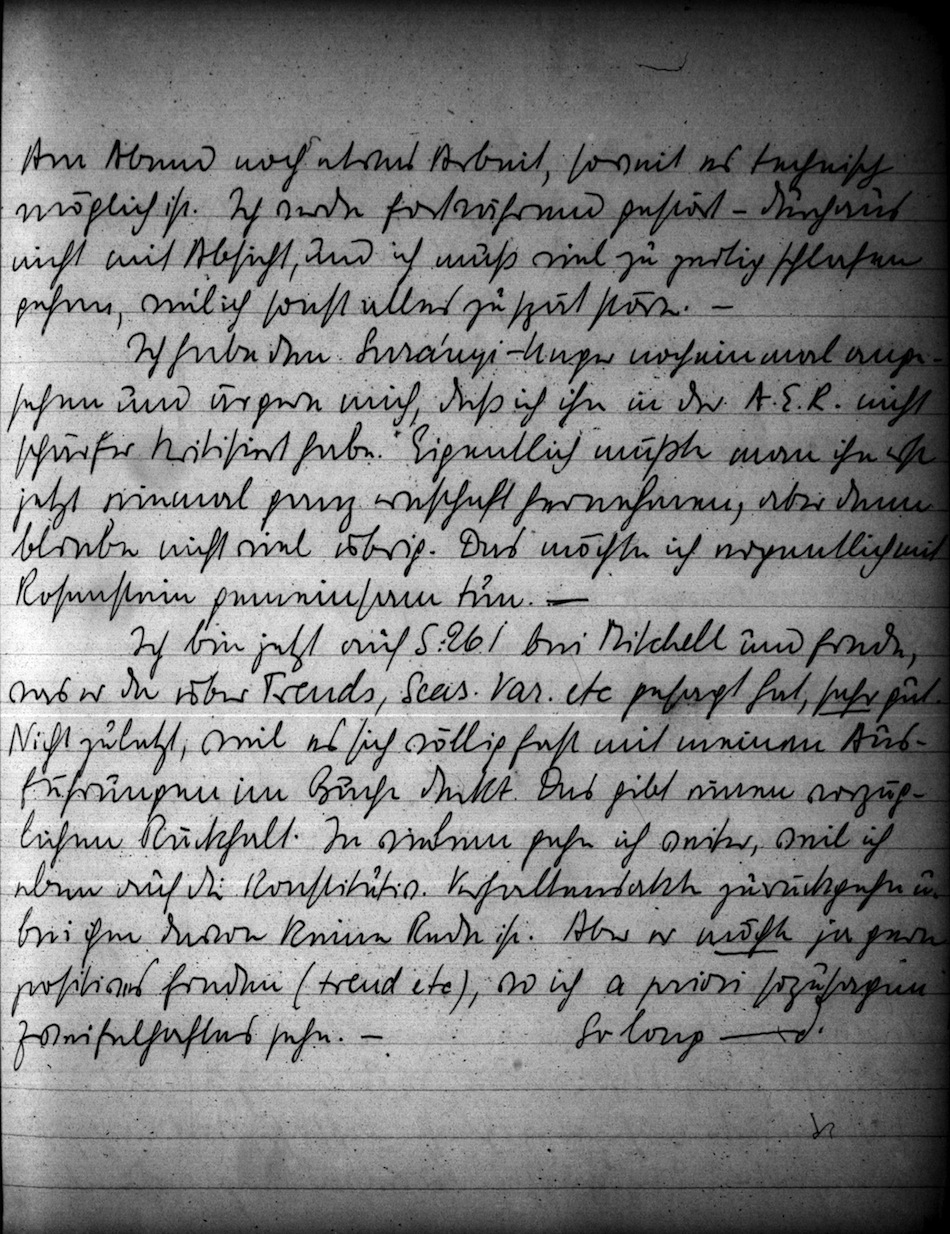 Am Abend noch etwas Arbeit, soweit es technisch
möglich ist. Ich werde fortwährend gestört – durchaus
nicht mit Absicht, und ich muß viel zu zeitig schlafen
gehen, weil ich sonst alles zu spät störe. –
Ich habe den Surányi-Unger noch einmal ange-
sehen und ärgere mich, daß ich ihn in der A.E.R. nicht
schärfer kritisiert habe. Eigentlich müßte man ihn erst
jetzt einmal ganz ernsthaft hernehmen, aber dann
bliebe nicht viel übrig. Das möchte ich eigentlich mit
Rosenstein gemeinsam tun. —
Ich bin jetzt auf S. 261 bei Mitchell und finde,
was er da über Trends, Seas. Var. etc gesagt hat, sehr gut.
Nicht zuletzt, weil es sich völlig fast mit meinen Aus-
führungen im Buche deckt. Das gibt einen vorzüg-
lichen Rückhalt. In vielem gehe ich weiter, weil ich
eben auf die Konstitutiv. Verhaltensakte zurückgehe u.
bei ihm davon keine Rede ist. Aber er möchte ja gern
positives finden (trend etc), wo ich a priori sozusagen
zweifelhaftes sehe. – So long —